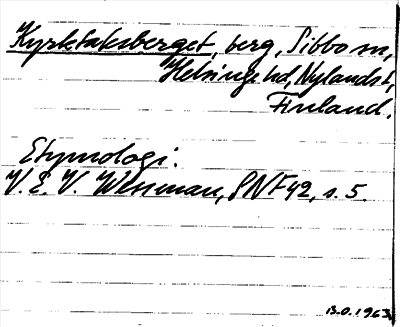 Kyrktaksberget, berg, Sibbo sn,
Helsinge hd, Nylandsl,
Finland.
Etymologi.
V. E. V. Wessman, SNF 42, s. 5.
B.O. 1963